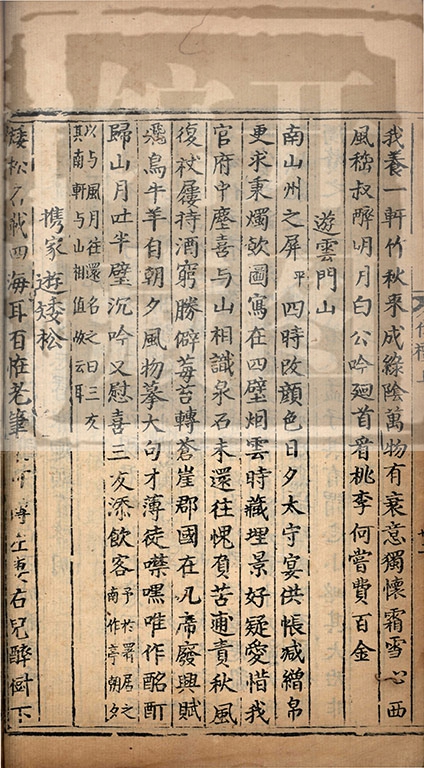 我養一軒竹秋來成綠陰萬物有衰意獨懷霜雪心西
風嵇叔醉明月白公吟廻首看桃李何嘗費百金
遊雲門山
南山州之屏平四時改顔色日夕太守宴供帳减繒帛
更求秉燭歡圖寫在四壁烟雲時藏埋景好疑愛惜我
官府中塵喜與山相識泉石未還往愧負苦逋責秋風
復杖屨持酒窮勝僻莓苔轉蒼崖郡國在几席廢興賦
飛鳥牛羊自朝夕風物摹大句才薄徒噤嘿唯作酩酊
歸山月吐半璧沉吟又慰喜三友添飲客予於署居之南作亭朝夕
以与風月往還名之曰三友
其南軒与山相值故云耳
携家遊矮松
矮松名載四海耳百怪老筆 左 右兒醉倒下